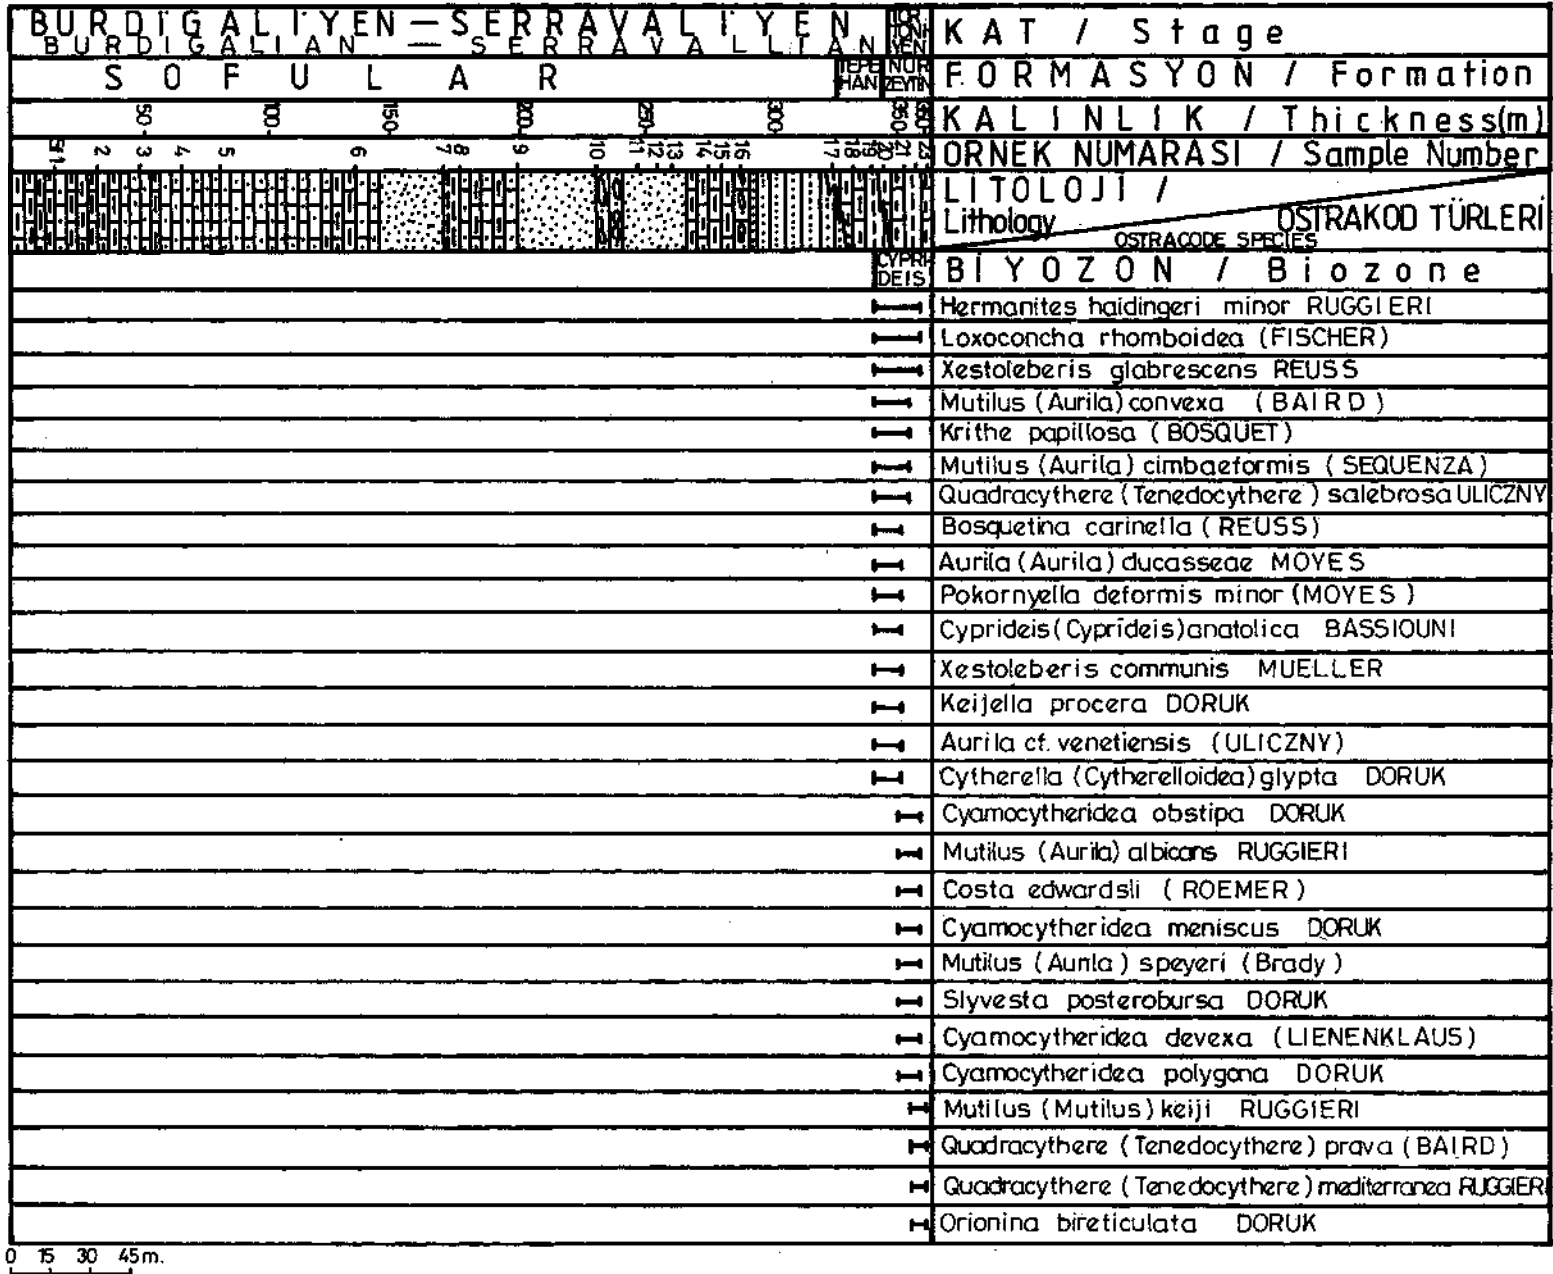 BURDİGALİYEN — SERRAVALİYEN
BURDIGALIAN — SERRAVALLIAN
TOR
TONİ
YEN
KAT / Stage
SOFULAR
TEPE
HAN
NUR
ZEYTİN
FORMASYON / Formation
50 100 150 200 250 300 350 360
KALINLIK / Thickness(m)
2 3 4 5 6 7 8 9 10 11 12 13 14 15 16 17 18 19 20 21 23
ÖRNEK NUMARASI / Sample Number
LİTOLOJİ /
Lithology
OSTRAKOD TÜRLERİ
OSTRACODE SPECIES
CYPRI
DEIS
BİYOZON / Biozone
Hermanites haidingeri minor RUGGIERI
Loxoconcha rhomboidea (FISCHER)
Xestoleberis glabrescens REUSS
Mutilus (Aurila) convexa (BAIRD)
Krithe papillosa (BOSQUET)
Mutilus (Aurila) cimbaeformis (SEQUENZA)
Quadracythere (Tenedocythere) salebrosa ULICZNY
Bosquetina carinella (REUSS)
Aurila (Aurila) ducasseae MOYES
Pokornyella deformis minor (MOYES)
Cyprideis (Cyprideis) anatolica BASSIOUNI
Xestoleberis communis MUELLER
Keijella procera DORUK
Aurila cf. venetiensis (ULICZNY)
Cytherella (Cytherelloidea) glypta DORUK
Cyamocytheridea obstipa DORUK
Mutilus (Aurila) albicans RUGGIERI
Costa edwardsii (ROEMER)
Cyamocytheridea meniscus DORUK
Mutilus (Aurila) speyeri (Brady)
Slyvesta posterobursa DORUK
Cyamocytheridea devexa (LIENENKLAUS)
Cyamocytheridea polygona DORUK
Mutilus (Mutilus) keiji RUGGIERI
Quadracythere (Tenedocythere) prava (BAIRD)
Quadracythere (Tenedocythere) mediterranea RUGGIERI
Orionina bireticulata DORUK
0 15 30 45m.